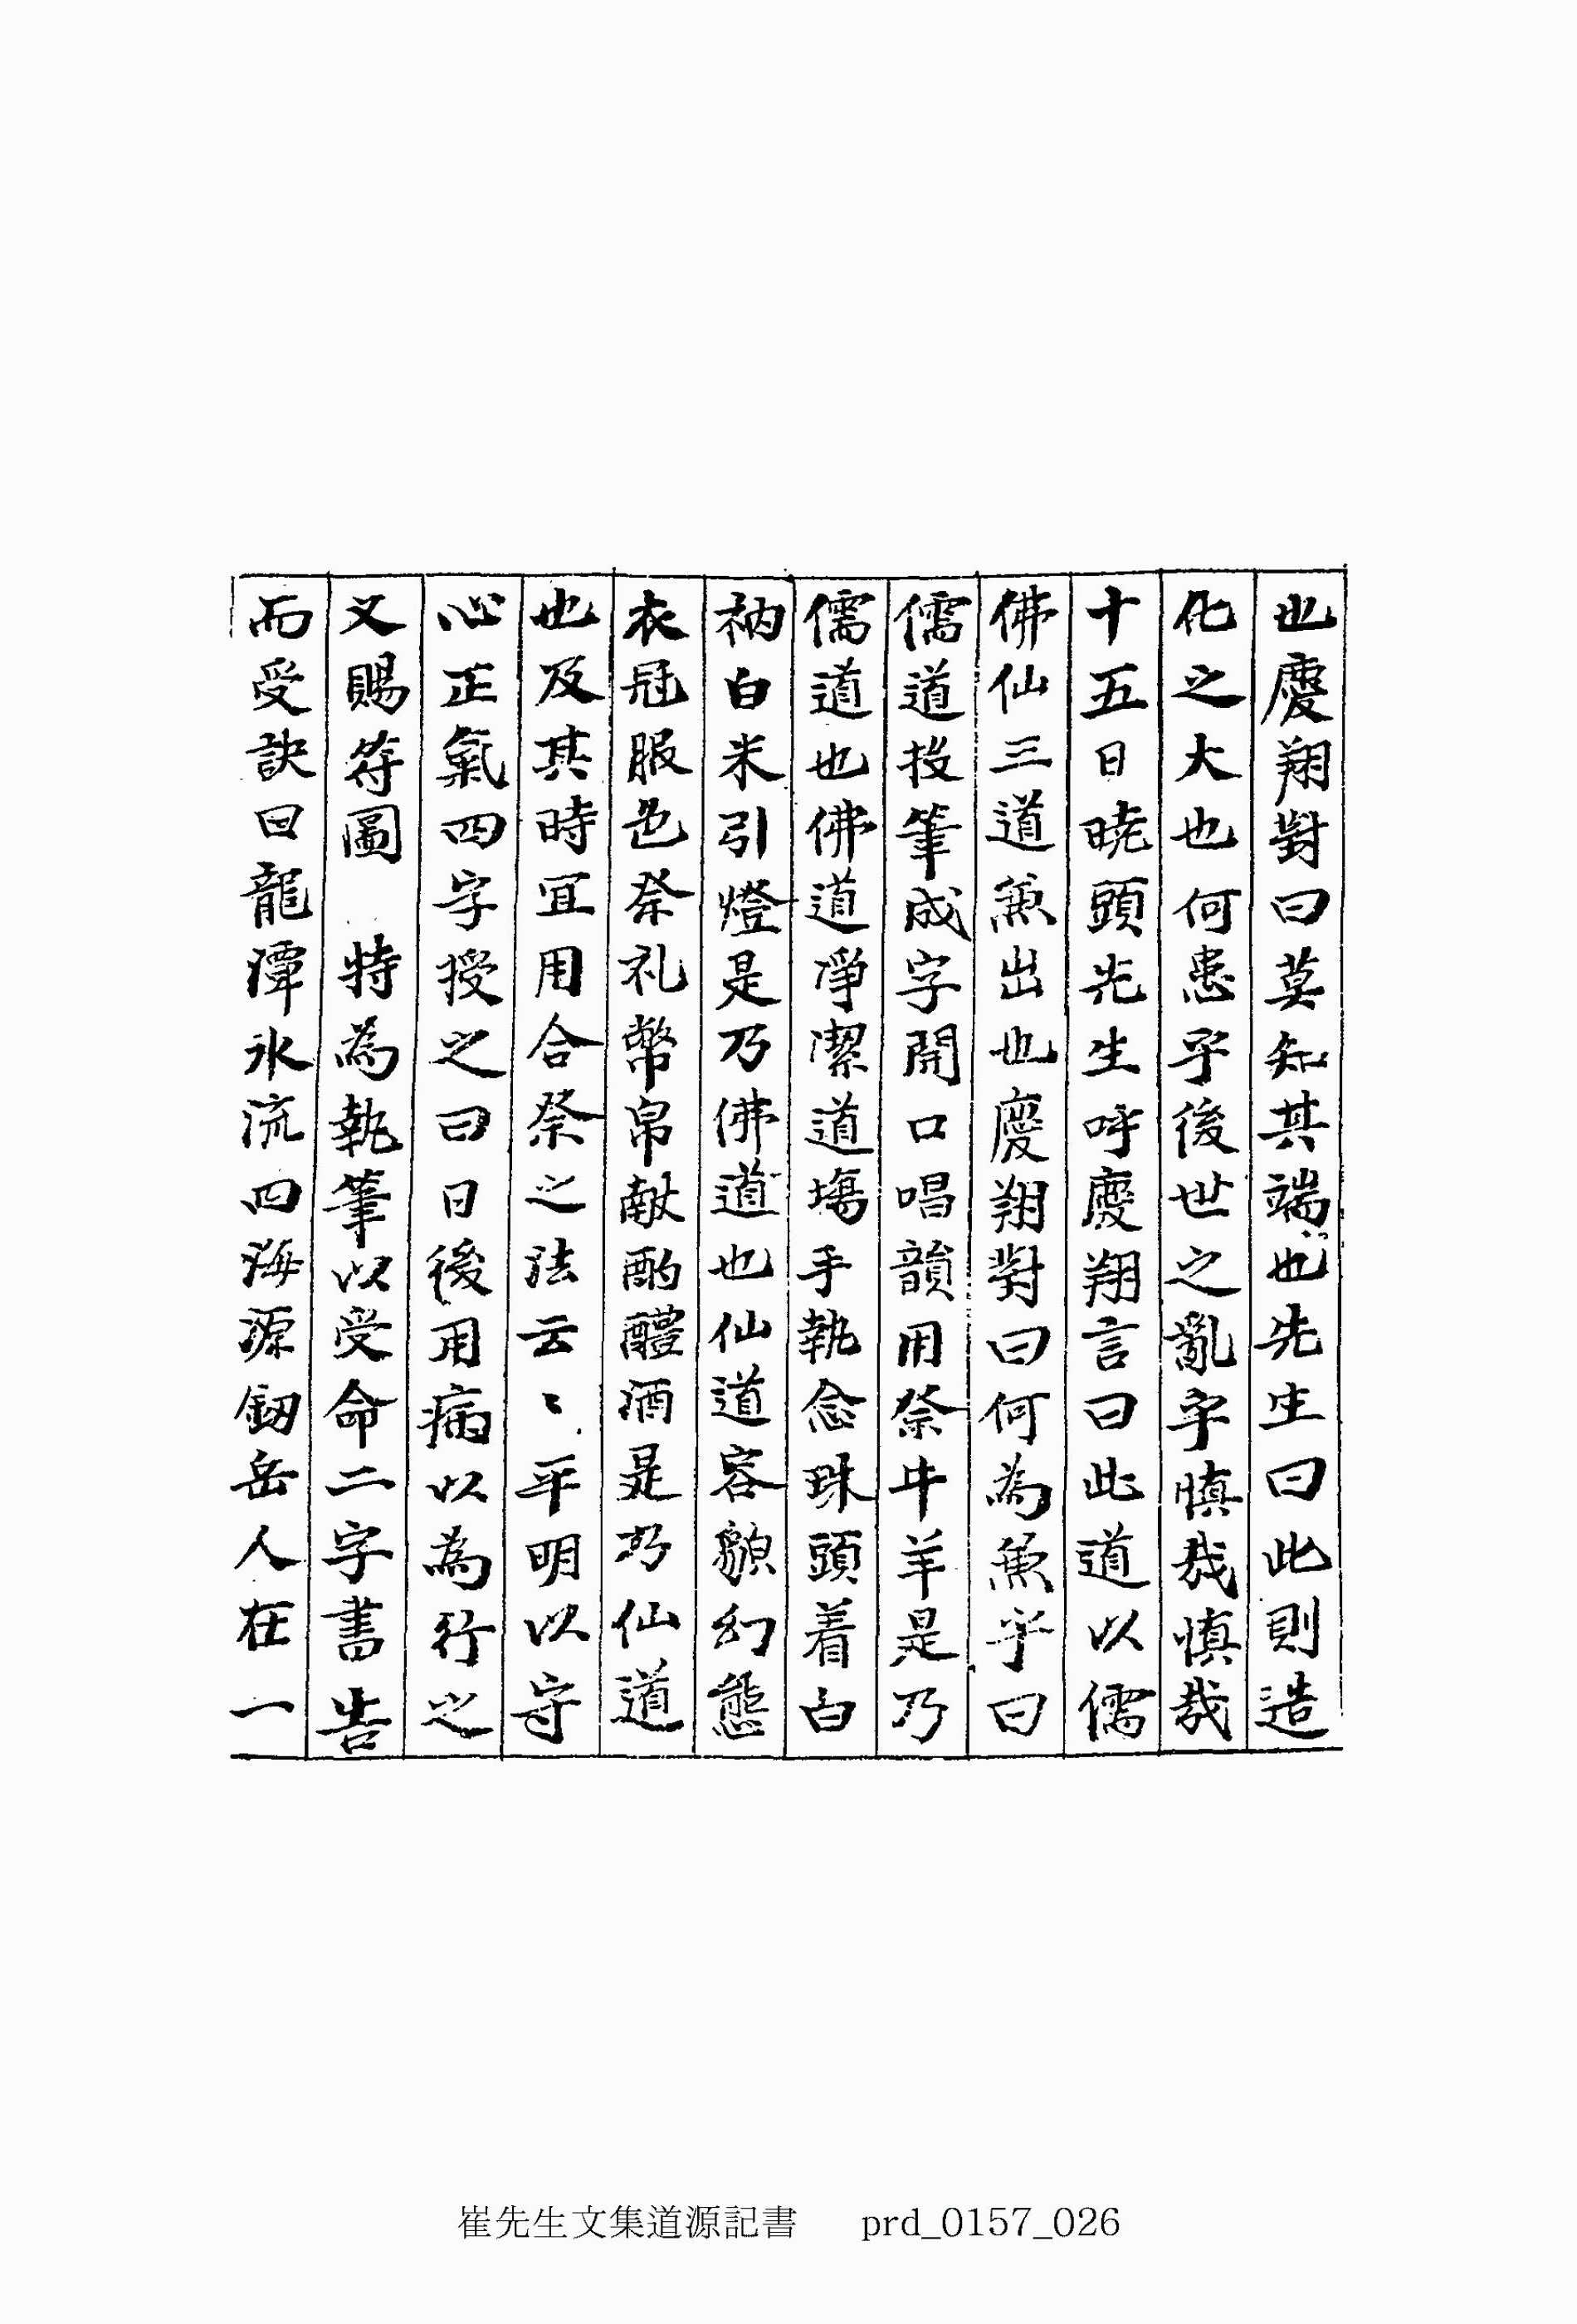 也慶翔對曰莫知其端也先生曰此則造
化之大也何患乎後世之亂乎愼哉愼哉
十五日曉頭先生呼慶翔言曰此道以儒
佛仙三道兼出也慶翔對曰何為兼乎曰
儒道投筆成字開口唱韻用祭牛羊是乃
儒道也佛道淨潔道塲手執念珠頭着白
衲白米引燈是乃佛道也仙道容貌幻態
衣冠服色祭礼幣帛献酌醴酒是乃仙道
也及其時宜用合祭之法云〻平明以守
心正氣四字授之曰日後用病以為行之
又賜符圖 特為執筆以受命二字書告
而受訣曰龍潭水流四海源釼岳人在一
崔先生文集道源記書 prd_0157_026